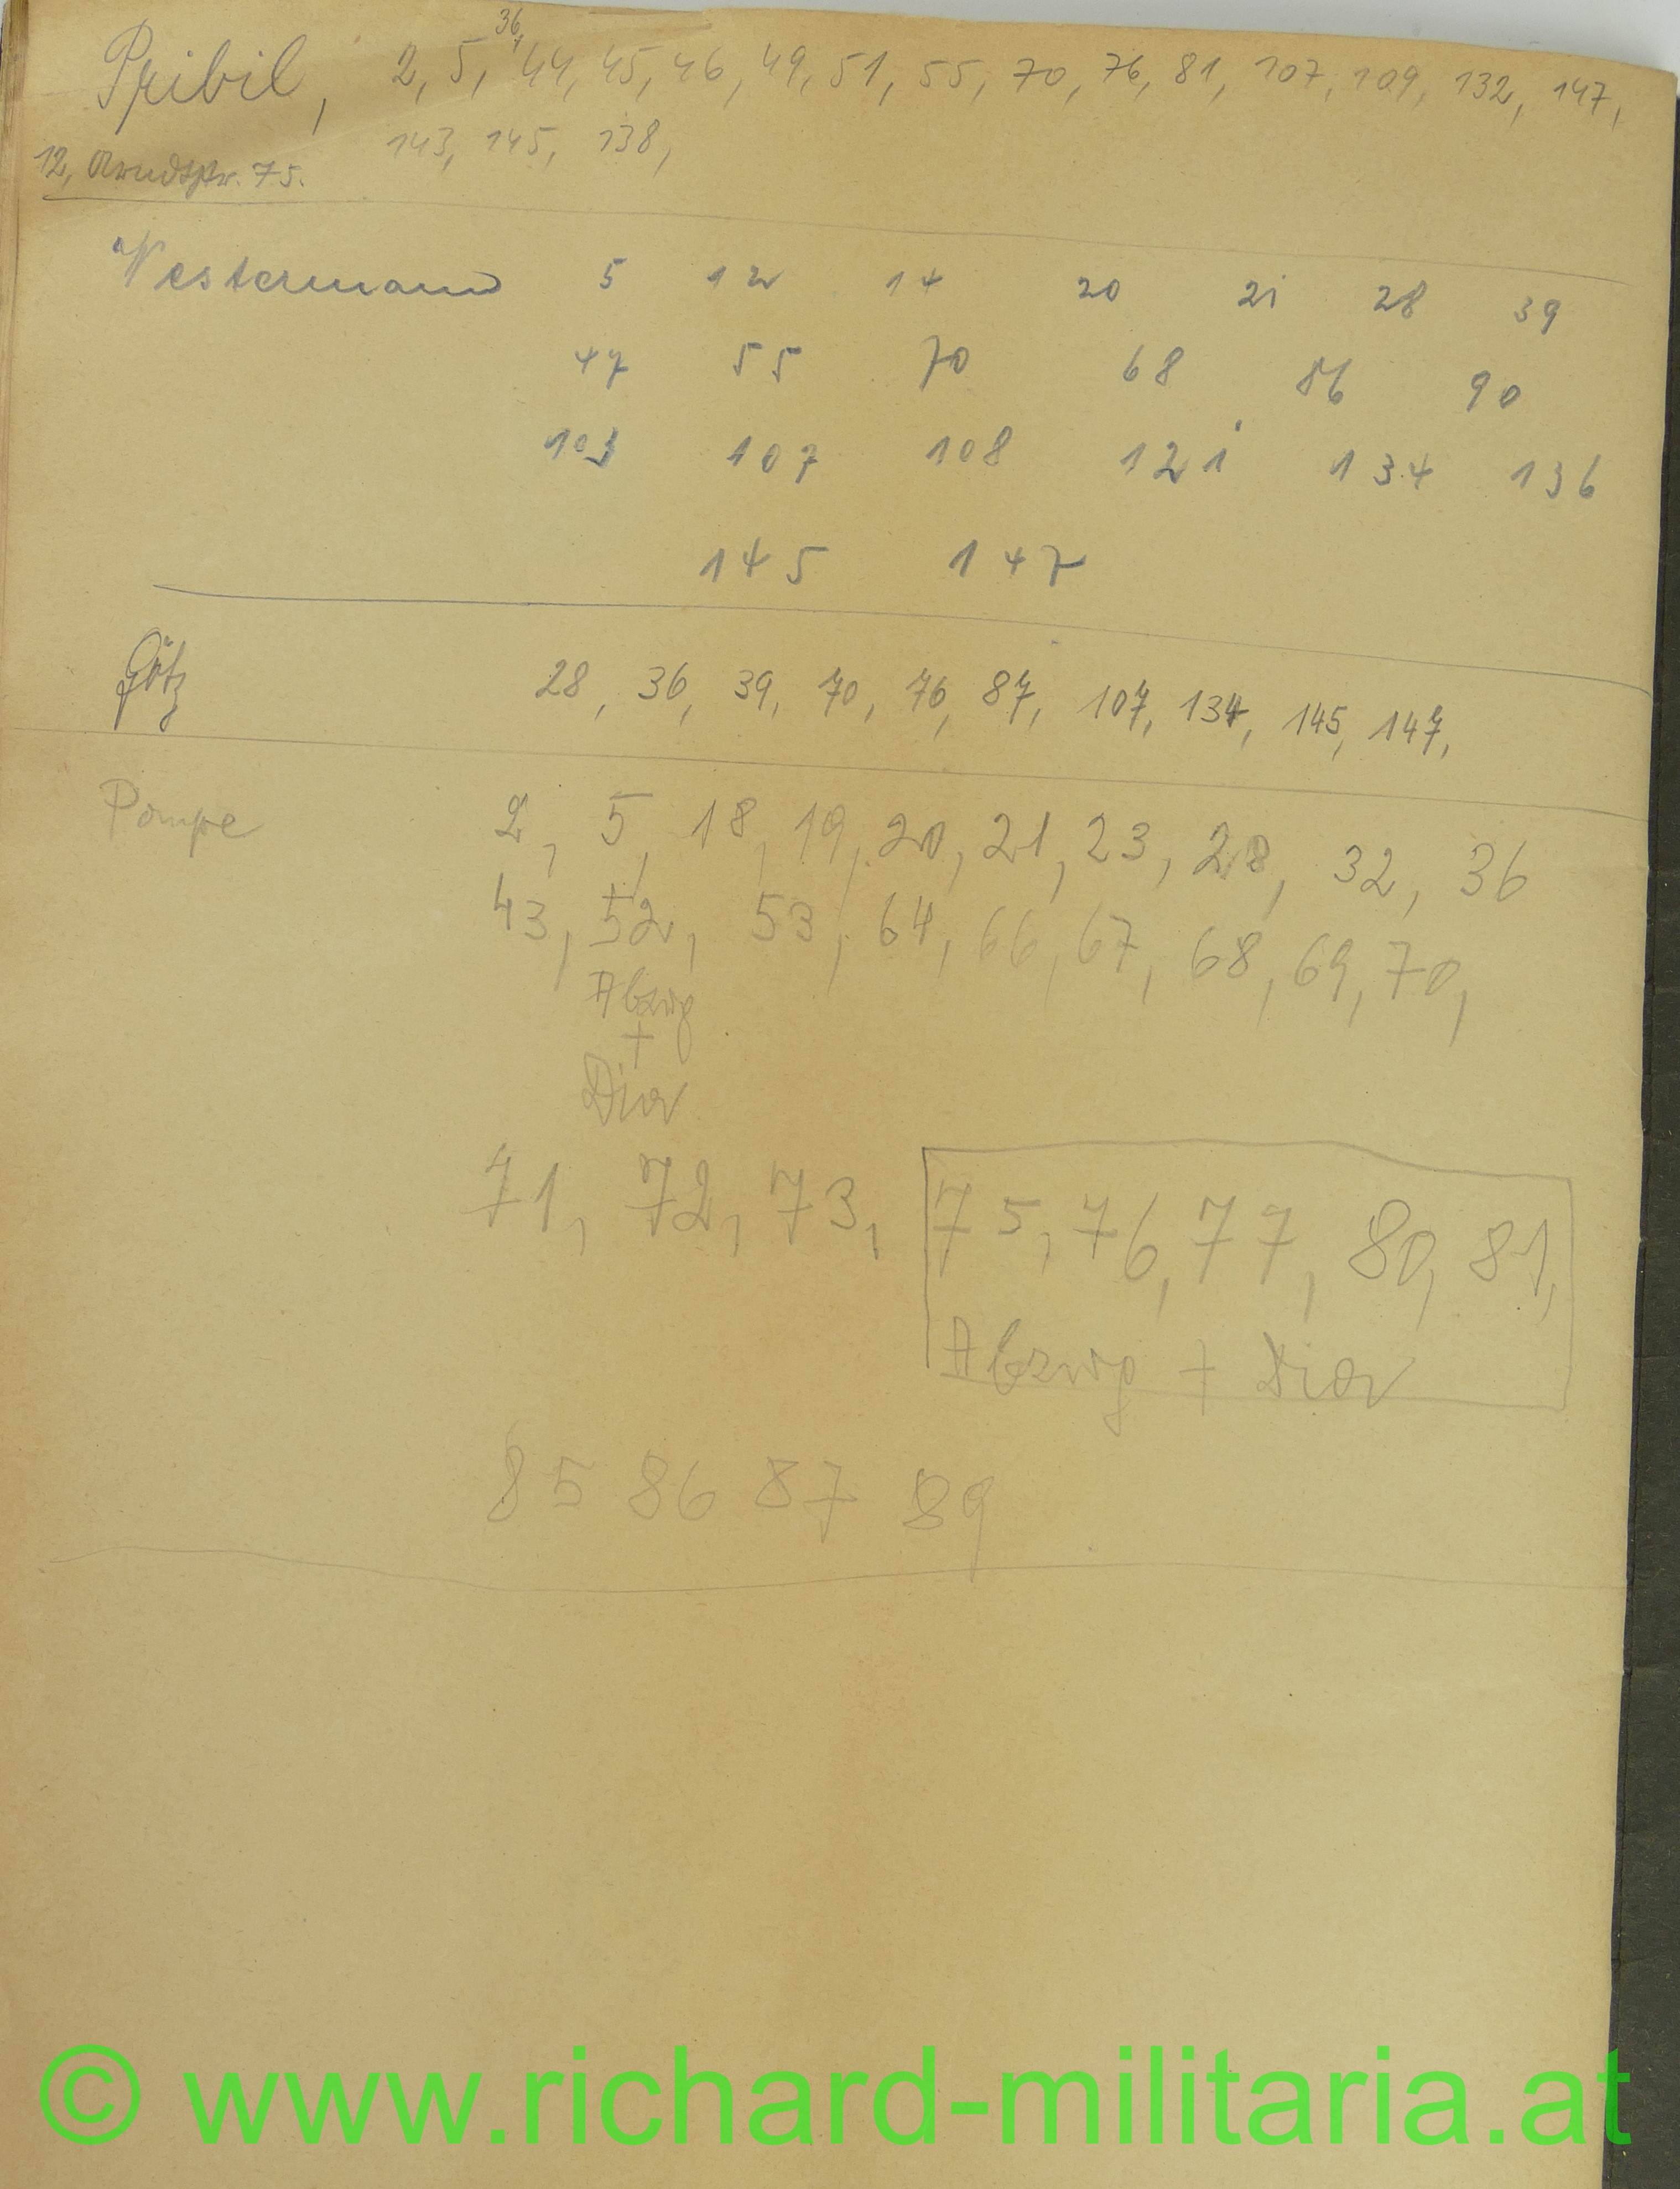 Pribil, 2, 5, 36, 44, 45, 46, 49, 51, 55, 70, 76, 81, 107, 109, 132, 147,
143, 145, 138,
12, Arndtstr. 75.
Westermann 5 12 14 20 21 28 39
47 55 70 68 86 90
103 107 108 121 134 136
145 147
Götz 28, 36, 39, 70, 76, 87, 107, 134, 145, 147,
Pompe 2, 5, 18, 19, 20, 21, 23, 28, 32, 36
43, 52, 53, 64, 66, 67, 68, 69, 70,
Abzug
+
Dia
71, 72, 73, 75, 76, 77, 80, 81,
Abzug + Dia
85 86 87 89
© www.richard-militaria.at